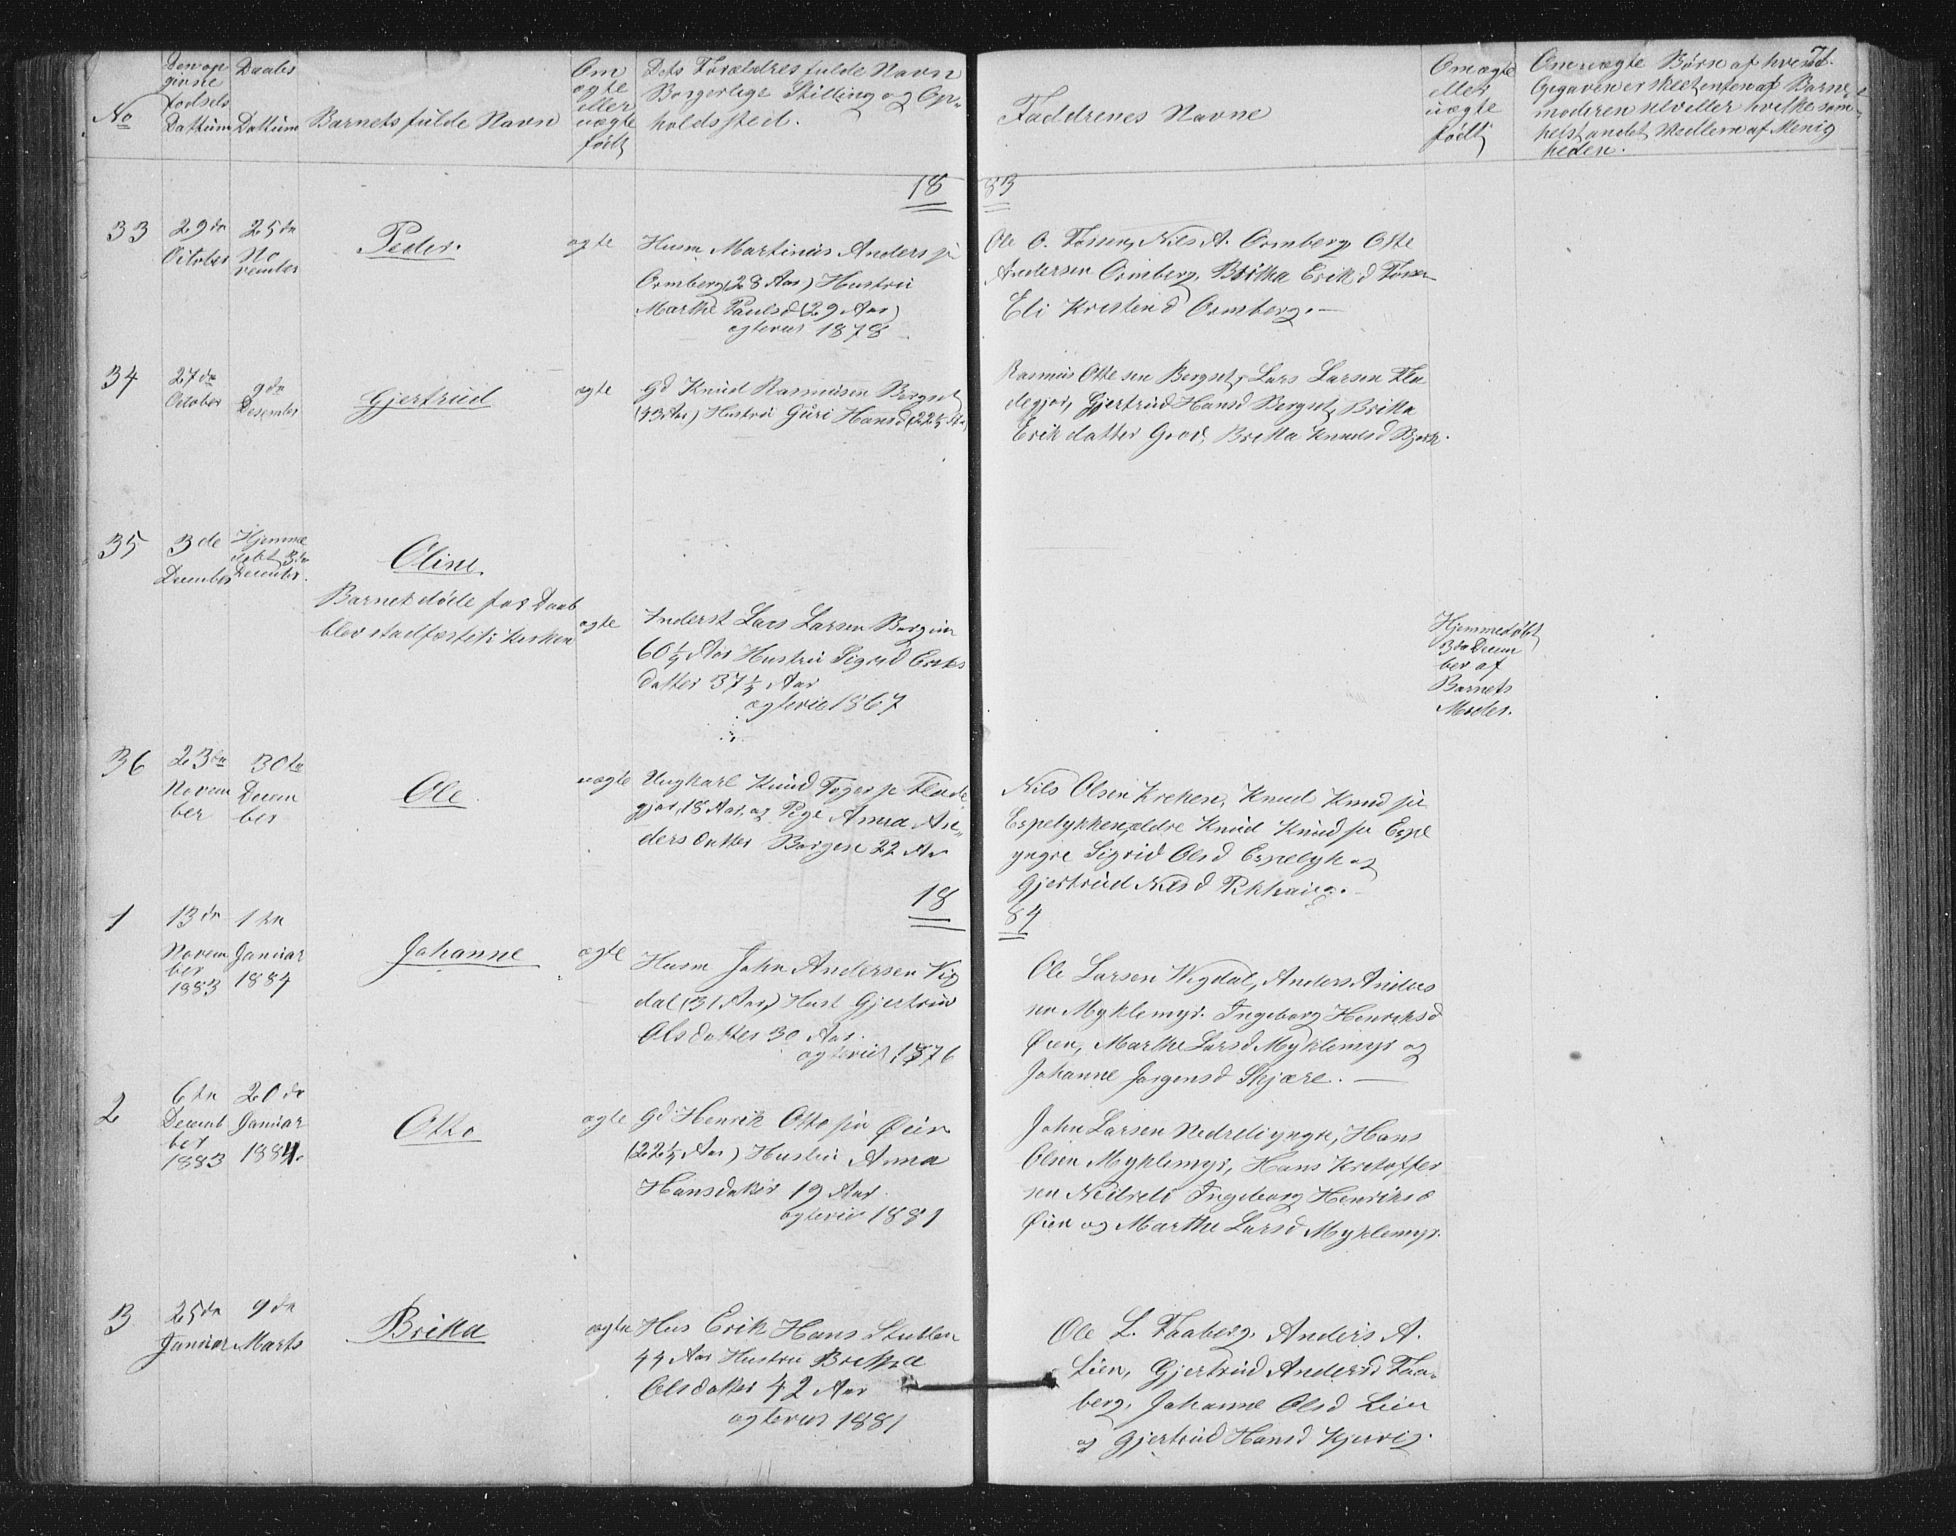 71.
No
Den op
givne
fødsels
Dattum
Daabs
Dattum
Barnets fulde Navn
Om
ægte
eller
uægte
født
Dets Forældres fulde Navn
Borgerlige Stilling og Op-
holdssted.
Faddrenes Navne
Om ægte
eller
uægte
født
Om uægte Børn af hvem
Opgaven er skeet enten af Barne
moderen selv eller hvilke som
helst andet Medlem af Menig
heden.
1883
33
29de
October
25de
No
vember
Peder.
ægte
Husm Martinus Anders sø
Ormberg (28 Aar) Hustru
Marthe Paulsd (29 Aar)
egteviet 1878
Ole O. Fossen, Nils A. Ormberg Otte
Andersen Ormberg, Britha Erik d Fossen
Eli Kristen d Ormberg.—
34
27de
October
9de
Desember
Gjertrud
ægte
Gd Knud Rasmusen Bergset
(43 Aar) Hustru Guri Hansd (22½ Aar)
Rasmus Ottesen Bergset, Lars Larsen Flu
degjor, Gjertrud Hansd Bergset, Britha
Erikdatter Grov, Britha Knudsd Bjørk.
35
3de
December
Hjemme
døbt 3de
December.
Oline
Barnet døde før Daab
blev stadfæstet i Kirken
ægte
Inderst Lars Larsen Borgen
60½ Aar Hustru Sigrid Eriks
datter 37½ Aar
egteviet 1867
Hjemmedøbt
3de Decem
ber af
Barnets
Moder.
36
23de
Novem
ber
30te
Decem
ber
Ole
uægte
Ungkarl Knud Toger sø Flude
gjor 18 Aar og Pige Anna An-
dersdatter Borgen 22 Aar
Nils Olsen Kreken, Knud Knud sø
Espelykken ældre Knud Knud sø Espel
yngre Sigrid Olsd Espelyk og
Gjertrud Nils d Rkhaug.—
1884
1
13de
Novem
ber
1883
1te
Januar
1884
Johanne
ægte
Husm John Andersen Vig
dal (31 Aar) Hust Gjertrud
Olsdatter 30 Aar.
egteviet 1876
Ole Larsen Wigdal, Anders Anders
sen Myklemyr. Ingeborg Henriksd
Øien, Marthe Larsd Myklemyr og
Johanne Jørgensd Skjære.—
2
6te
Decemb
ber
1883
20de
Januar
1884.
Otto
ægte
Gd Henrik Otto søn Øien
(22½ Aar) Hustru Anna
Hansdatter 19 Aar.
egteviet 1881
John Larsen Nedreli yngre, Hans
Olsen Myklemyr, Hans Kristoffer
sen Nedreli Ingeborg Henriksd
Øien og Marthe Larsd Myklemyr.
3
25de
Januar
9de
Marts
Britha
ægte
Hus Erik Hans Stublen
44 Aar Hustru Britha
Olsdatter 42 Aar
egteviet 1881
Ole L. Faaberg, Anders A.
Lien, Gjertrud Andersd Faa-
berg, Johanne Olsd Lien
og Gjertrud Hansd Kjervig.